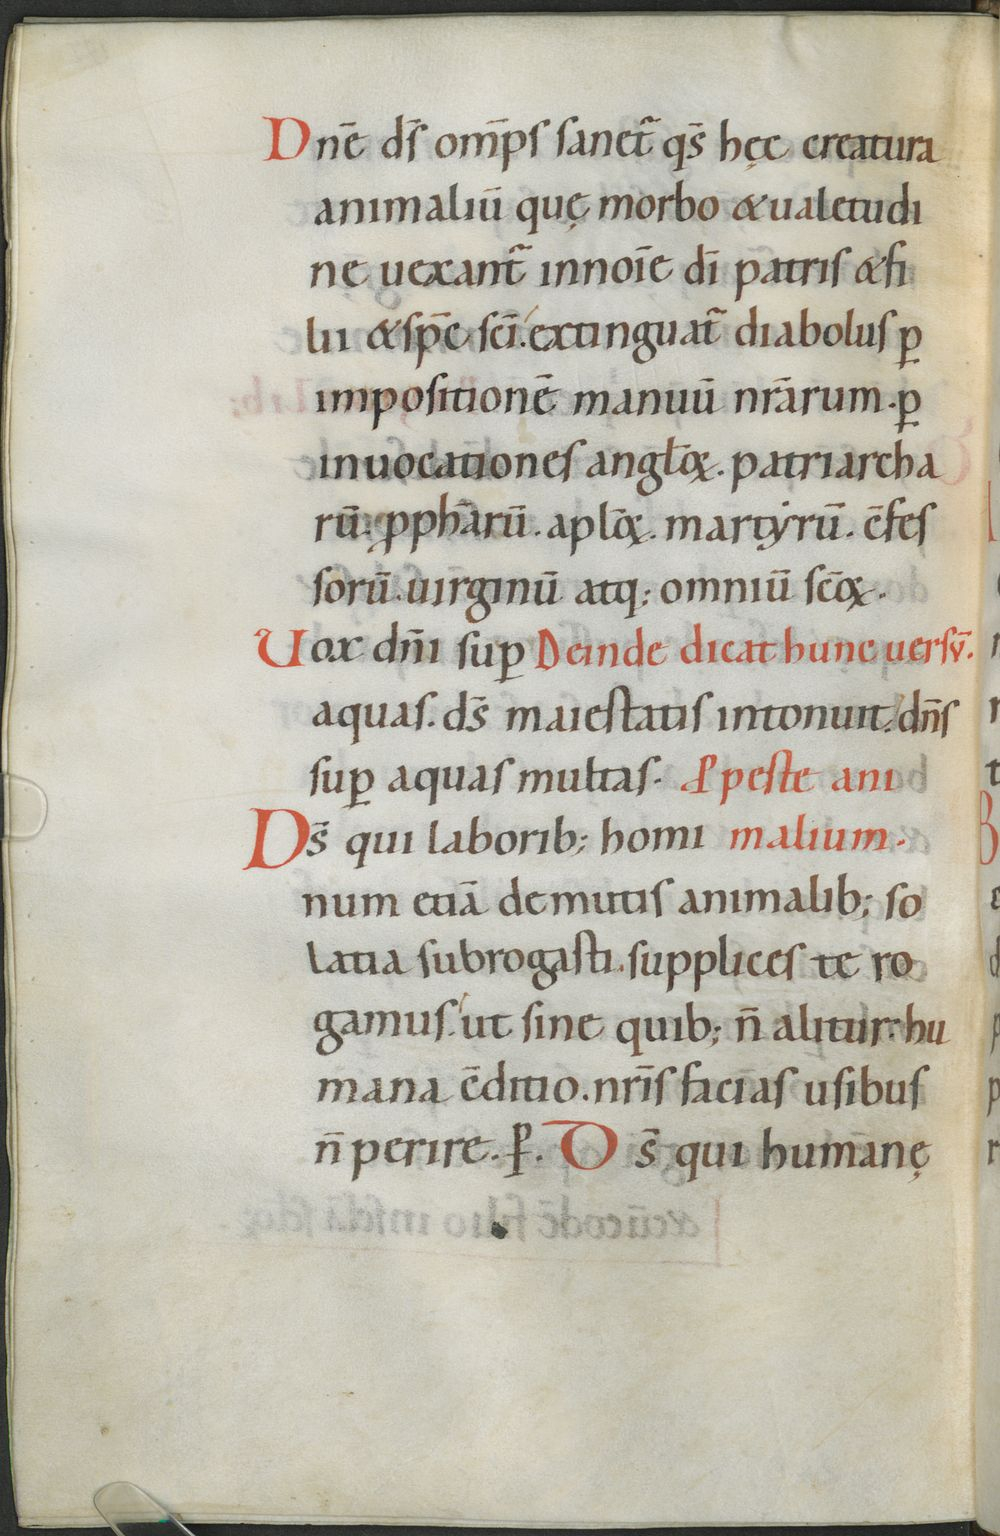 Dnē ds̄ om̄ps sanet᷑ qs̄ hęc creatura
animaliū quę morbo & ualetudi
ne uexant᷑ in noīe dī patris & fi
lii & sp̄c sc̄i. extinguat᷑ diabolus ꝑ
impositionē manuū nr̄arum. ꝑ
inuocationes angl̄oꝝ. patriarcha
rū. ꝓph̄arū. apl̄oꝝ. martẏrū. c̄fes
sorū. uirginū atq; omniū sc̄oꝝ.
Uox dn̄i suꝑ Deinde dicat hunc uersū.
aquas. ds̄ maiestatis intonuit. dn̄s
suꝑ aquas multas. P̱ peste ani
Ds̄ qui laborib; homi malium.
num etiā de mutis animalib; so
latia subrogasti. supplices te ro
gamus. ut sine quib; n̄ alitur. hu
mana c̄ditio. nr̄is facias usibus
n̄ perire. P̄. Ds̄ qui humanę